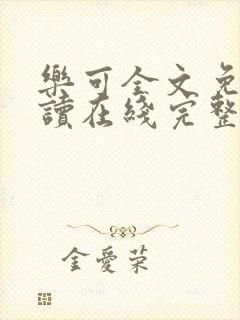 樂可全文免
讀在綫完整
金愛荣